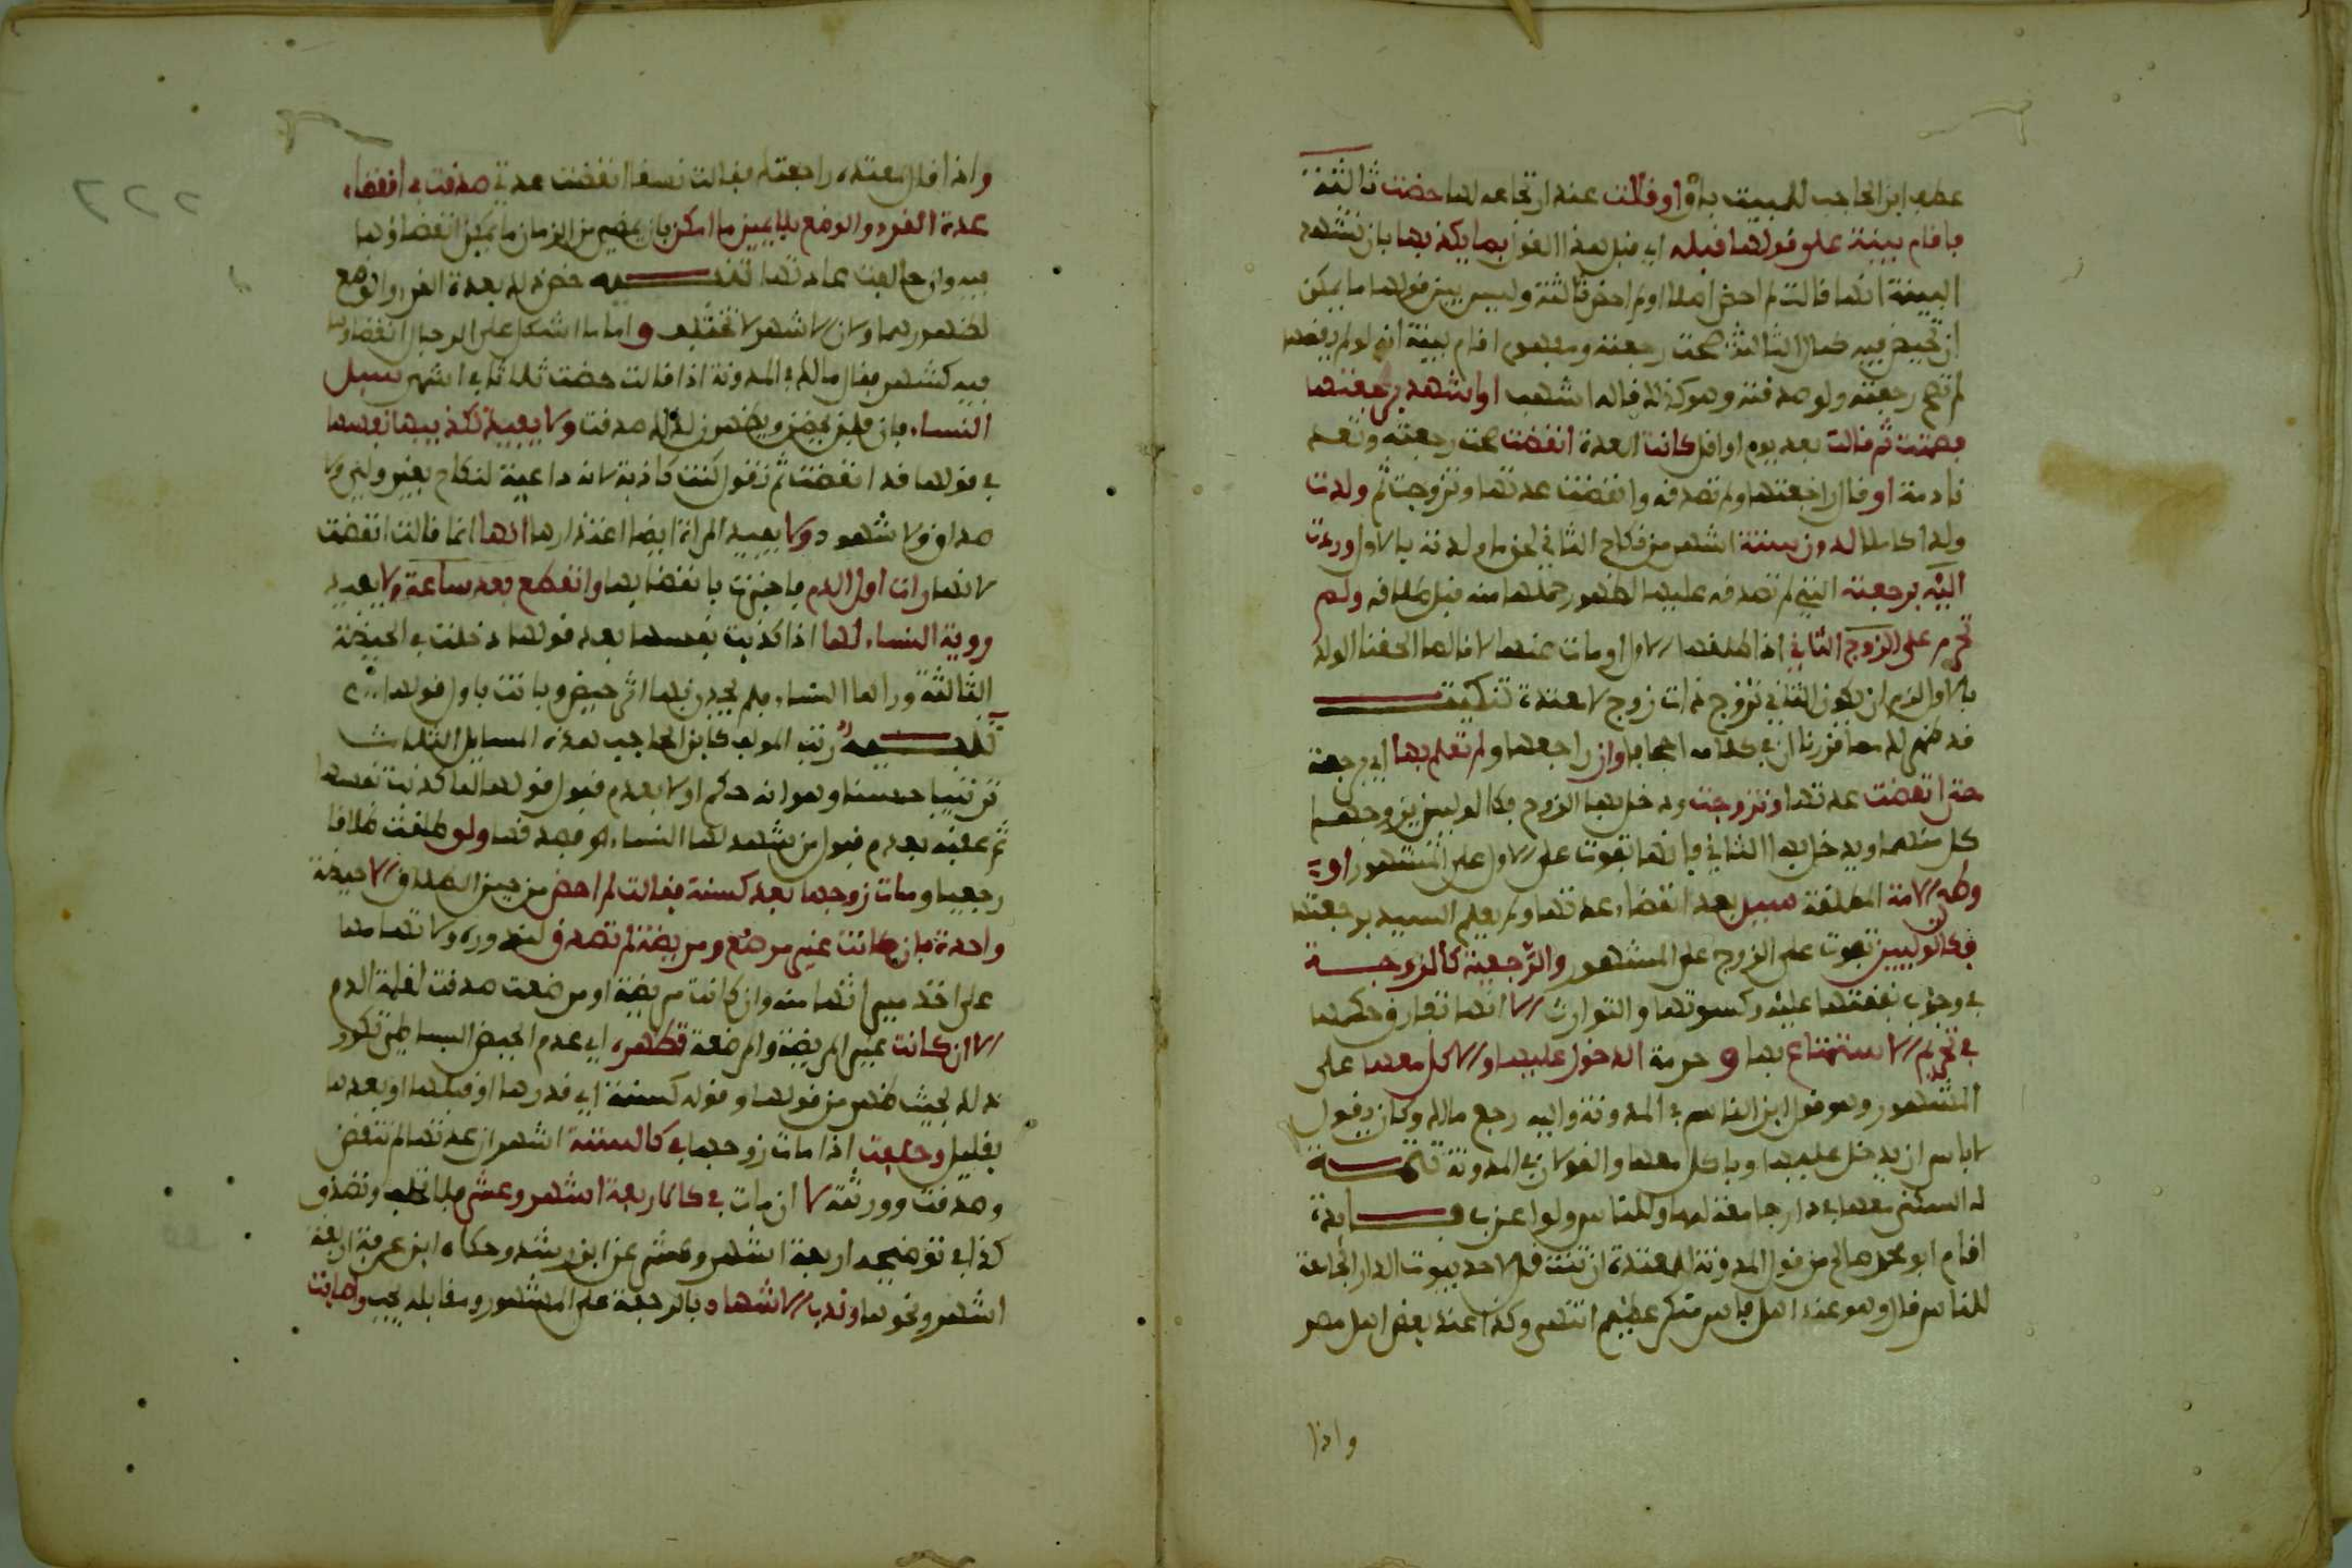 عطف ابن الحاجب للمبيت باو او قالت عند ارتجاعه لها حضت ثالثة
فاقام بينة على قولها قبله اي قبل هذا القول بما يكذبها بان تشهد
البينة انها قالت لم احض اصلا او لم احض ثالثة وليس بين قوليها ما يمكن
ان تحيض فيه الثالثة صحت رجعته ومفهوم اقام بينة انه لو لم يقمها
لم تصح رجعته ولو صدقته وهو كذلك قاله اشهب او اشهد برجعتها
فصمتت ثم قالت بعد يوم او اقل كانت العدة انقضت صحت رجعته وتعد
نادمة او قال راجعتها ولم تصدقه وانقضت عدتها وتزوجت ثم ولدت
ولدا كاملا لدون ستة اشهر من نكاح الثاني لحق ما ولدته بالاول وردت
اليه برجعته التي لم تصدقه عليها لظهور حملها منه قبل طلاقه ولم
تحرم على الزوج الثاني اذا طلقها الاول او مات عنها لانا لما الحقنا الولد
بالاول لزم ان يكون الثاني تزوج ذات زوج لا معتدة تنكيت
قد ظهر لك مما قررنا ان في كلامه اجحافا وان راجعها ولم تعلم بها اي برجعته
حتى انقضت عدتها وتزوجت ودخل بها الزوج فكالوليين يزوجها
كل منهما ويدخل بها الثاني فانها تفوت على الاول على المشهور او
وطء الامة المطلقة سيد بعد انقضاء عدتها ولم يعلم السيد برجعتها
فكالوليين تفوت على الزوج على المشهور والرجعية كالزوجة
في وجوب نفقتها عليه وكسوتها والتوارث الا انها تفارق حكمها
في تحريم الاستمتاع بها و حرمة الدخول عليها والاكل معها على
المشهور وهو قول ابن القاسم في المدونة واليه رجع مالك وكان يقول
لا باس ان يدخل عليها وياكل معها والقولان في المدونة تتمة
له السكنى معها في دار جامعة لهما وللناس ولو اعزب فايدة
اقام ابو محمد صالح من قول المدونة للمعتدة ان تنتقل لاحد بيوت الدار الجامعة
للناس قال وهو عند اهل فاس منكر عظيم انتهى وكذا عند بعض اهل مصر
واذا
٢٢٦
واذا قال لمعتدة راجعتك فقالت نسقا انقضت عدتي صدقت في انقضاء
عدة القرء والوضع بلا يمين ما امكن بان يمضي من الزمان ما يمكن انقضاؤها
فيه وان خالفت عادتها تنبيه خص ذلك بعدة القرء والوضع
لظهورهما ولان الاشهر لا تختلف و اما ما اشكل على الرجال انقضاؤها
فيه كشهر فقال مالك في المدونة اذا قالت حضت ثلاثا في اشهر سيل
النساء فان قلن يحضن ويطهرن لذلك صدقت ولا يفيد تكذيبها نفسها
في قولها قد انقضت ثم تقول كنت كاذبة لانه داعية لنكاح بغير ولي ولا
صداق ولا شهود ولا يفيد المراة ايضا اعتذارها انها انما قالت انقضت
لانها رات اول الدم فاخبرت بانقضائها وانقطع بعد ساعة ولا يفيد
روية النساء لها اذا كذبت نفسها بعد قولها دخلت في الحيضة
الثالثة وراها النساء فلم يجدن بها اثر حيض وبانت باول قولها
تنبيه رتب المولف كابن الحاجب هذه المسايل الثلاث
ترتيبا حسنا وهو انه حكم اولا بعدم قبول قولها انها كذبت نفسها
ثم عقبه بعدم قبول من يشهد لها النساء لو فصدقها ولو طلقت طلاقا
رجعيا ومات زوجها بعد كسنة فقالت لم احض من حين الطلاق الا حيضة
واحدة فان كانت غير مرضع ومريضة لم تصدق لندوره ولاتهامها
على اخذ ميراثها منه وان كانت مريضة او مرضعت صدقت لغلبة الدم
الا ان كانت غير المريضة والمرضعة تظهره اي عدم الحيض النساء حتى تكرر
ذلك بحيث ظهر من قولها وقوله كسنة اي قدرها او قبلها او بعدها
بقليل وحلفت اذا مات زوجها في كالستة اشهر ان عدتها لم تنقض
وصدقت وورثته لا ان مات في كالاربعة اشهر وعشر فلا تحلف وتصدق
كذا في توضيحه اربعة اشهر وعشر عن ابن رشد وحكاه ابن عرفة اربعة
اشهر ونحوها وندب الاشهاد بالرجعة على المشهور ومقابله يجب واصابت